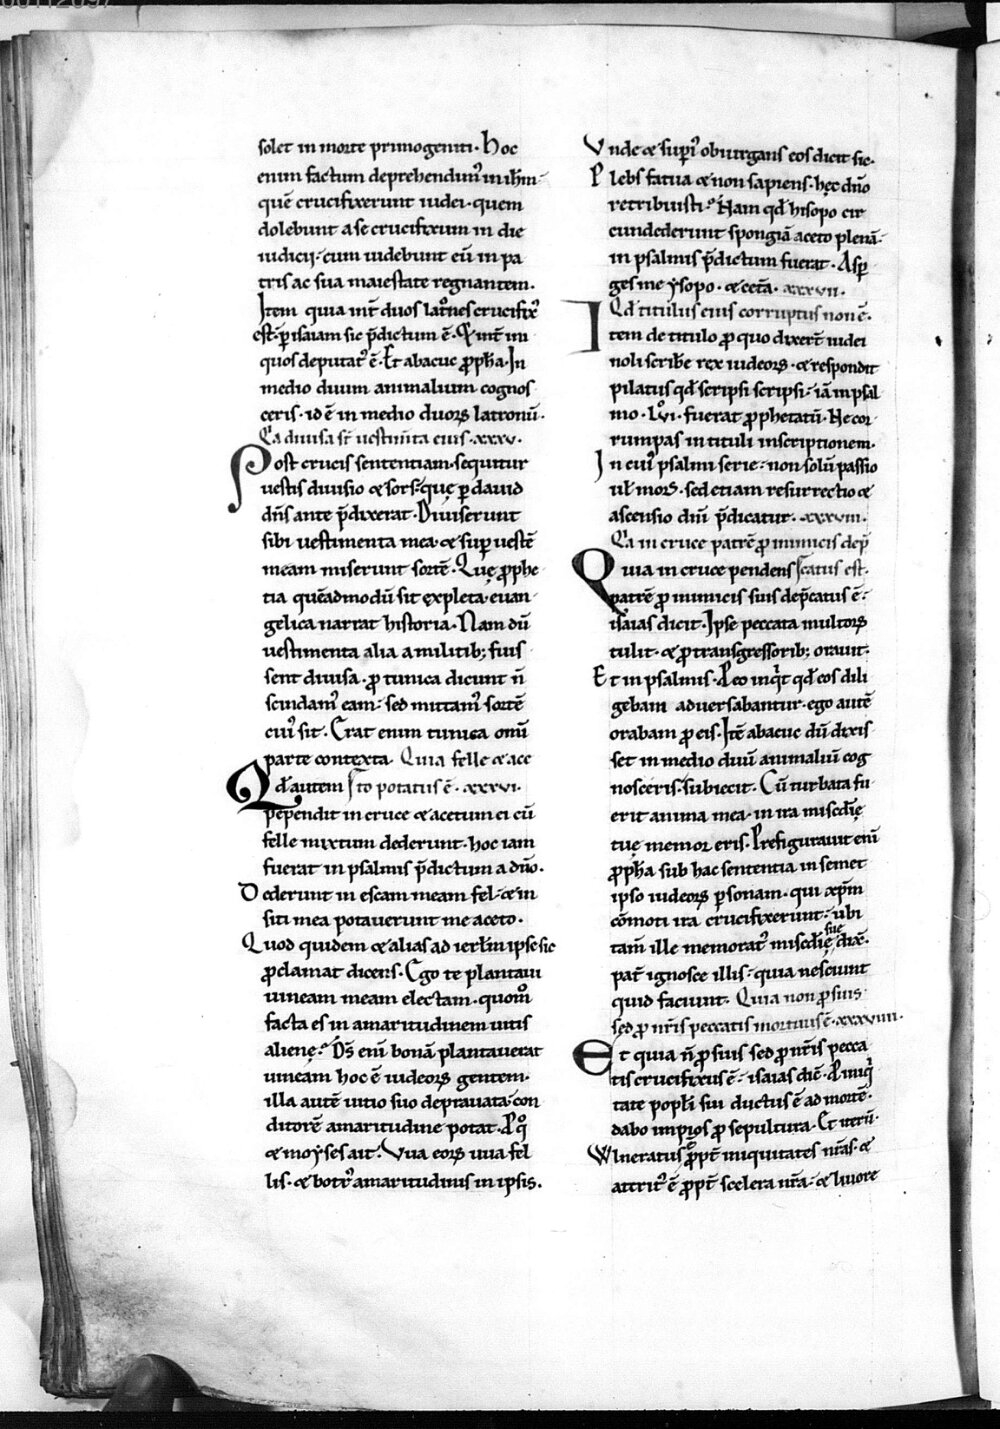 solet in morte primogeniti. Hoc
enim factum deprehendim᷒ in ihm̄·
quē crucifixerunt iudei· quem
dolebunt a se crucifixum in die
iudicij· cum uidebunt eū in pa
tris ac sua maiestate regnantem.
Item quia int̄ duos lat͛nes crucifix᷒
est· ꝑ isaiam sic p̄dictum ē· & int̄ ini
quos deputat᷒ ē· Et abacuc ꝓph̄a· In
medio duum animalium cognos
ceris· id ē in medio duoꝝ latronū·
Q̄a diuisa st̄ uestim̄ta eius· xxxv·
Post crucis sententiam· sequitur
uestis diuisio & sors· quę ꝑ dauid
dn̄s ante p̄dixerat· Diuiserunt
sibi uestimenta mea· & suꝑ uestē
meam miserunt sortē· Quę ꝓphe
tia quēadmodū sit expleta· euan
gelica narrat historia· Nam dū
uestimenta alia a militib; fuis
sent diuisa· ꝓ tunica dicunt n̄
scindam᷒ eam· sed mittam᷒ sortē
cui᷒ sit· Erat enim tunica om̄i
parte contexta· Quia felle & ace
Qd̄ autem to potatus ē· xxxvi·
pependit in cruce & acetum ei cū
felle mixtum dederunt· hoc iam
fuerat in psalmis p̄dictum a dn̄o·
Dederunt in escam meam fel· & in
siti mea potauerunt me aceto·
Quod quidem & alias ad ierlm̄ ipse sic
ꝓclamat dicens· Ego te plantaui
uineam meam electam· quom̊
facta es in amaritudinem uitis
alienę? Ds̄ eni᷒ bonā plantauerat
uineam hoc ē iudeoꝝ gentem·
illa autē uitio suo deprauata· con
ditorē amaritudine potat· De q̊
& moyses ait· Vua eoꝝ uua fel
lis· & botr᷒ amaritudinis in ipsis.
Vnde & supi᷒ obiurgans eos dicit sic·
Plebs fatua & non sapiens· hęc dn̄o
retribuisti? Nam qd̄ hisopo cir
cundederunt spongiā aceto plenā·
in psalmis p̄dictum fuerat· Asꝑ
ges me ysopo· & cet̄a· xxxvii·
Qd̄ titulus eius corruptus non ē·
Item de titulo ꝓ quo dixer̄t iudei
noli scribe᷒ rex iudeoꝝ· & respondit
pilatus qd̄ scripsi scripsi· iā in psal
mo· lvi· fuerat ꝓphetatū· Ne cor
rumpas in tituli inscriptionem·
In cui᷒ psalmi serie· non solū passio
ul̄ mors· sed etiam resurrectio &
ascensio dn̄i p̄dicatur· xxxviii·
Q̄a in cruce patrē ꝓ inimicis dep̄
Quia in cruce pendens catus est·
patrē ꝓ inimicis suis dep̄catus ē·
isaias dicit· Ipse peccata multoꝝ
tulit· & ꝓ transgressorib; orauit·
Et in psalmis· Pro eo inqͥt qd̄ eos dili
gebam aduersabantur· ego autē
orabam ꝓ eis· Itē abacuc dū dixis
set in medio duū animaliū cog
nosceris· subiecit· Cū turbata fu
erit anima mea· in ira miscd̄ię
tuę memor eris· Prefigurauit eni᷒
ꝓph̄a sub hac sententia in semet
ipso iudeoꝝ ꝑsonam· qui xp̄m
cōmoti ira crucifixerunt· ubi
tam̄ ille memorat᷒ miscd̄ię suę dix̄·
pat̄ ignosce illis· quia nesciunt
quid faciunt· Quia non ꝓ suis
sed ꝓ nr̄is peccatis mortuus ē· xxxviiii·
Et quia n̄ ꝓ suis sed ꝓ nr̄is pecca
tis crucifixus ē· isaias dic̄· Ab iniqͥ
tate popl̄i sui ductus ē ad mortē·
dabo impios ꝓ sepultura· Et iterū·
Wlneratus ꝓpt̄ iniquitates nr̄as· &
attrit᷒ ē ꝓpt̄ scelera nr̄a· & liuore